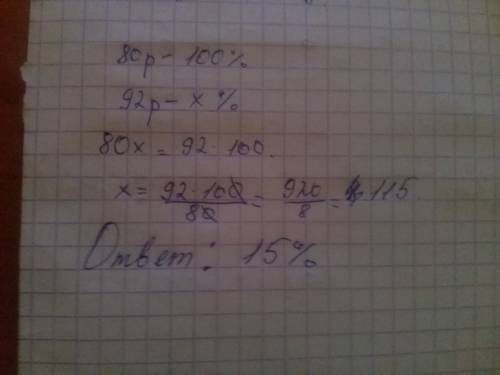 80р - 100%
92р - x %
80x = 92 · 100.
x = 92 · 100 / 80 = 920 / 8 = 115.
Ответ: 15%